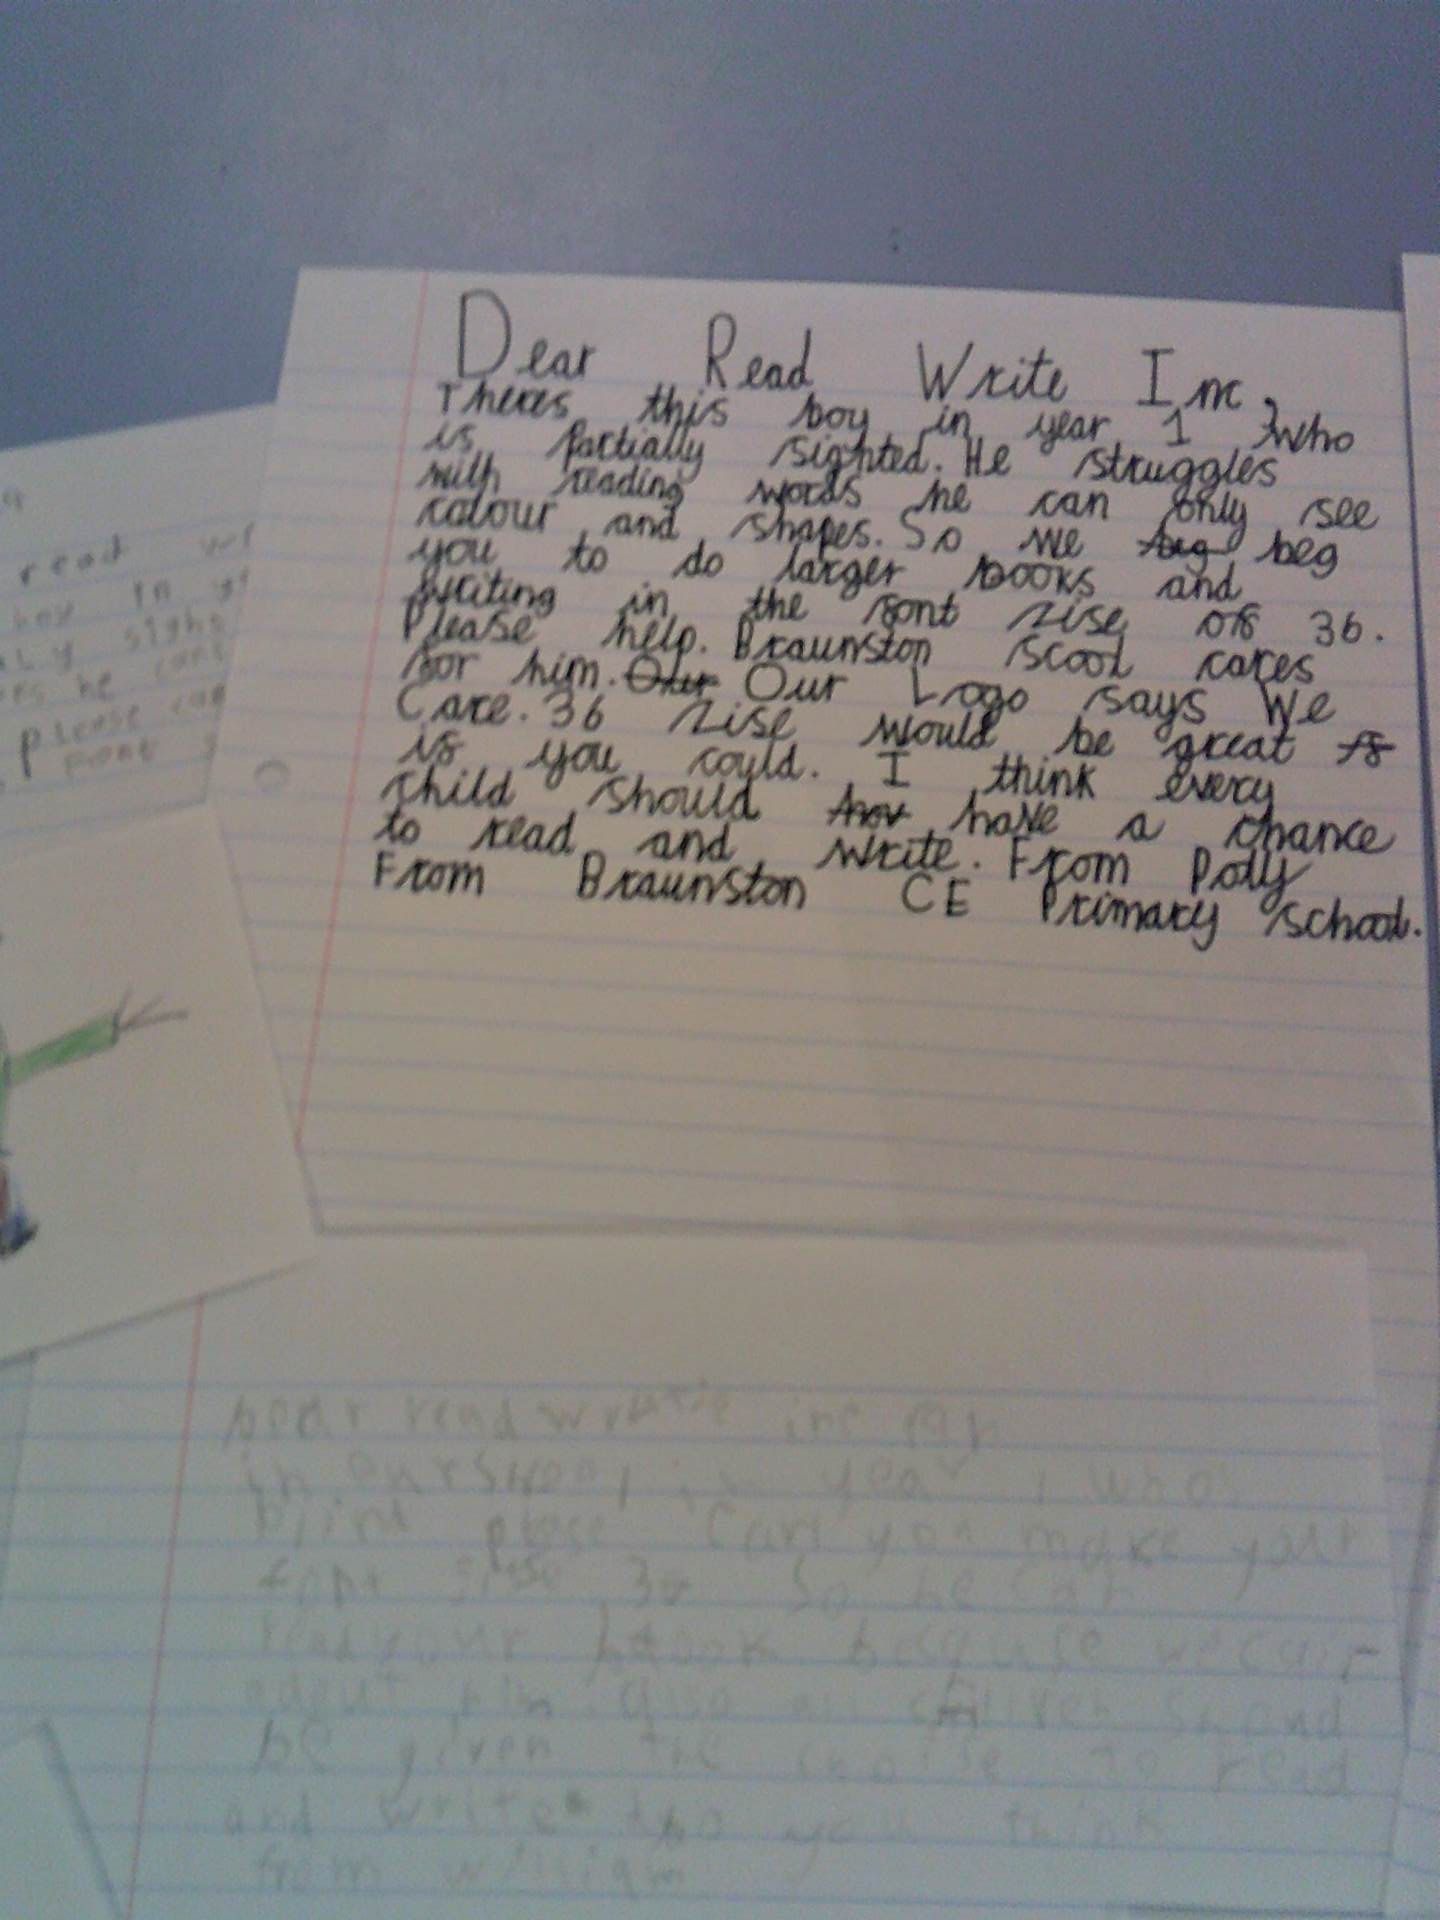 Dear Read Write Inc,
Theres this boy in year 1 who
is partially sighted. He struggles
with reading words he can only see
colour and shapes. So we beg beg
you to do larger books and
writing in the font sise of 36.
Please help. Braunston scool cares
for him. Our Our Logo says We
Care. 36 sise would be great if
if you could. I think every
child should hav have a chance
to read and write. From Polly
From Braunston CE Primary school.
read
boy in
please can
font
Dear read write inc
in our year 1 who
blind can you make your
font 36 so he can
read your book because we care
about him. also all
be given the to read
and write you think
from william